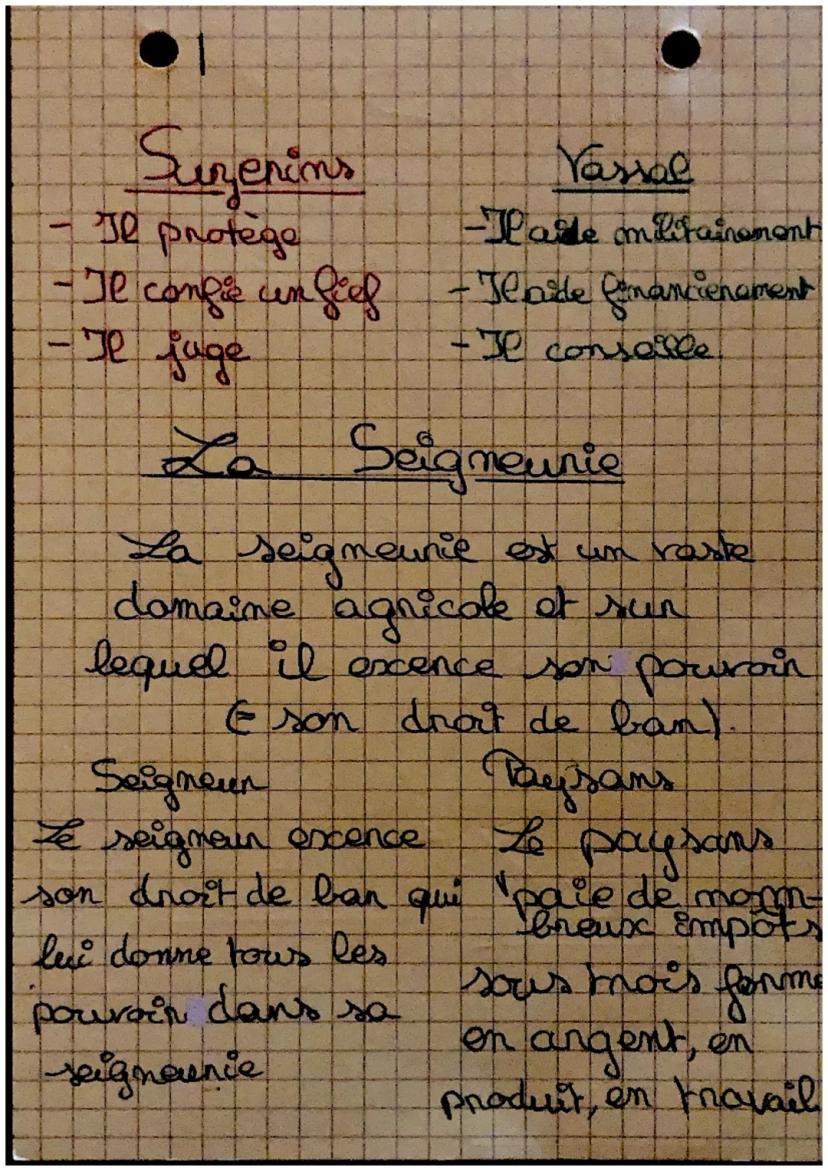 1
Suzerins
Vassal
- Il protège
- Il aide militairement
- Il confie un fief
- Il aide financièrement
- Il juge
- Il conseille
La Seigneurie
La seigneurie est un vaste
domaine agricole et sur
lequel il excerce son pouvoir
(= son droit de ban).
Seigneur
Le seigneur excerce
son droit de ban qui
lui donne tous les
pouvoir dans sa
seigneurie
Paysans
Le paysans
paie de nom-
breux impôts
sous trois forme
en argent, en
produit, en travail